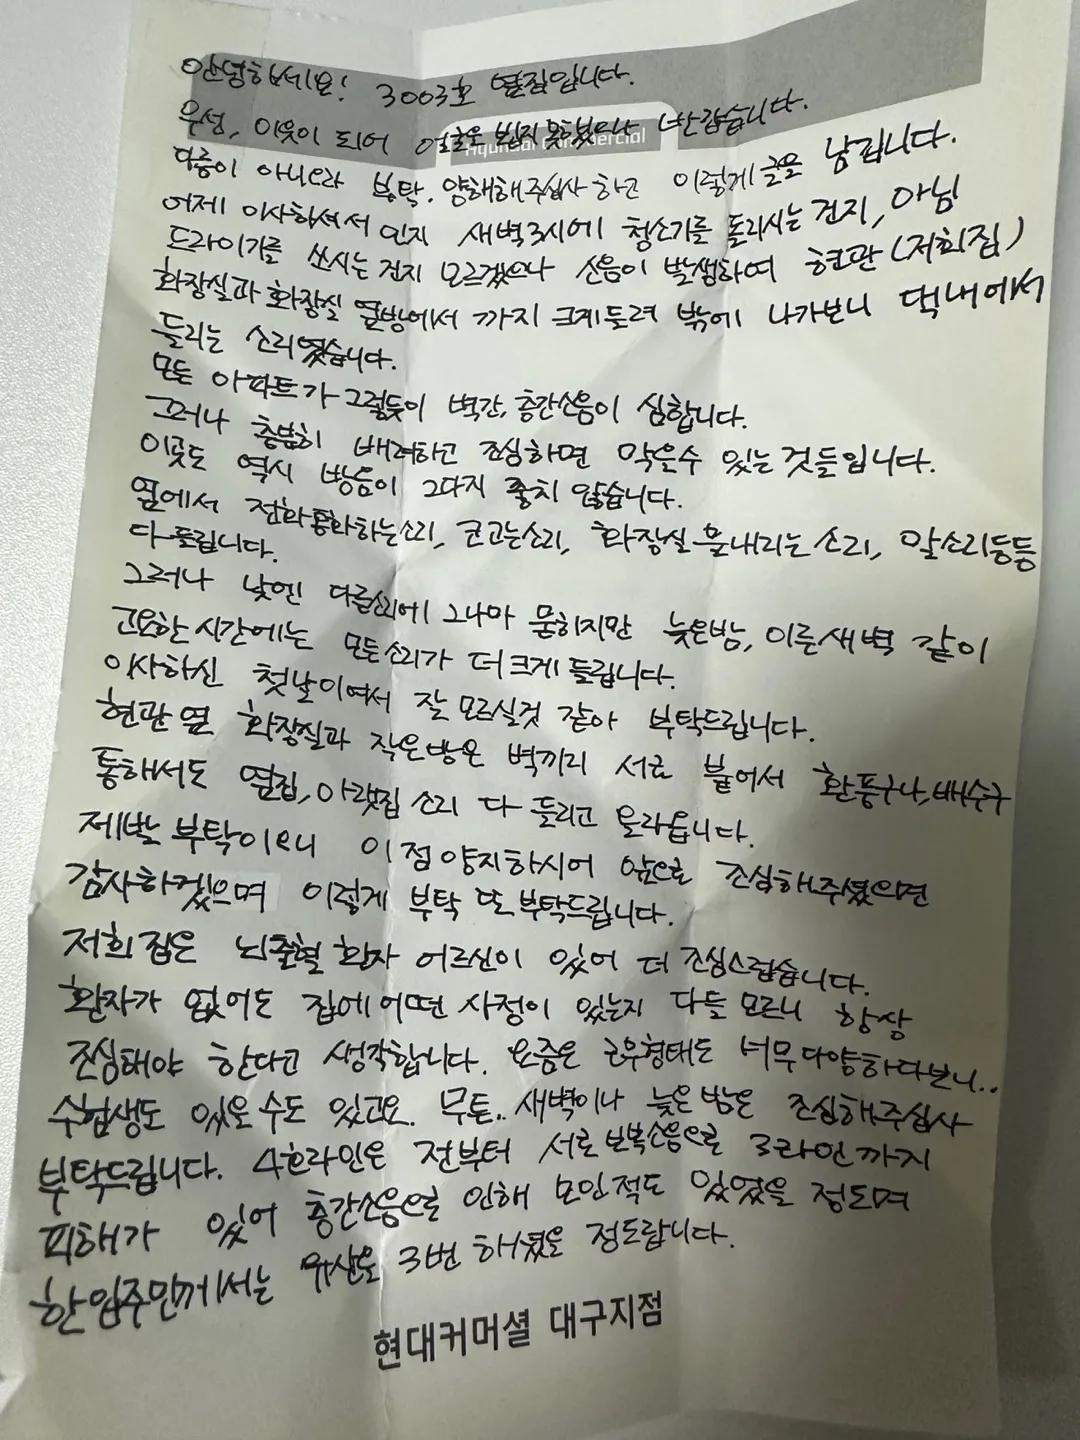 안녕하세요! 3003호 옆집입니다.
우선, 이웃이 되어 얼굴은 뵙지 못했으나 반갑습니다.
Hyundai Commercial
다름이 아니오라 부탁, 양해해주십사 하고 이렇게 글을 남깁니다.
어제 이사하셔서 인지 새벽3시에 청소기를 돌리시는 건지, 아님
드라이기를 쓰시는 건지 모르겠으나 소음이 발생하여 현관(저희집)
화장실과 화장실 옆방에서 까지 크게 들려 밖에 나가보니 댁내에서
들리는 소리였습니다.
모든 아파트가 그렇듯이 벽간, 층간소음이 심합니다.
그러나 충분히 배려하고 조심하면 막을수 있는 것들입니다.
이곳도 역시 방음이 그다지 좋치 않습니다.
옆에서 전화통화하는소리, 코고는소리, 화장실 물내리는 소리, 말소리등등
다 들립니다.
그러나 낮엔 다른소리에 그나마 묻히지만 늦은밤, 이른새벽 같이
고요한 시간에는 모든소리가 더 크게 들립니다.
이사하신 첫날이여서 잘 모르실것 같아 부탁드립니다.
현관 옆 화장실과 작은방은 벽끼리 서로 붙어서 환풍구나, 배수구
통해서도 옆집, 아랫집 소리 다 들리고 올라옵니다.
제발 부탁이오니 이점 양지하시어 앞으로 조심해주셨으면
감사하겠으며 이렇게 부탁 또 부탁드립니다.
저희 집은 뇌출혈 환자 어르신이 있어 더 조심스럽습니다.
환자가 없어도 집에 어떤 사정이 있는지 다들 모르니 항상
조심해야 한다고 생각합니다. 요즘은 근무형태도 너무다양하다보니..
수험생도 있을 수도 있고요. 무튼.. 새벽이나 늦은 밤은 조심해주십사
부탁드립니다. 4호라인은 전부터 서로 보복소음으로 3라인까지
피해가 있어 층간소음으로 인해 모인적도 있었을 정도며
한 입주민께서는 유산을 3번 하셨을 정도랍니다.
현대커머셜 대구지점